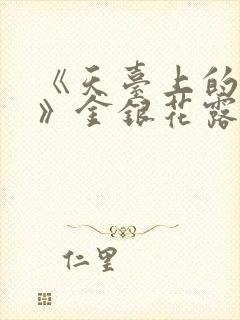 《天臺上的
》金銀花露
仁里